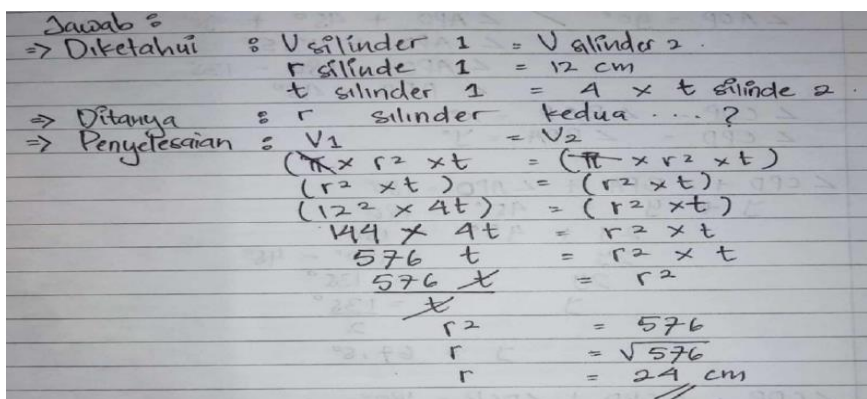 Jawab :
=> Diketahui : V silinder 1 = V silinder 2.
r silinde 1 = 12 cm
t silinder 1 = 4 x t silinde 2
=> Ditanya : r silinder kedua .... ?
=> Penyelesaian : V1 = V2
(π x r² x t = (π x r² x t)
(r² x t) = (r² x t)
(12² x 4t) = (r² x t)
144 x 4t = r² x t
576 t = r² x t
576 t = r²
t
r² = 576
r = √576
r = 24 cm